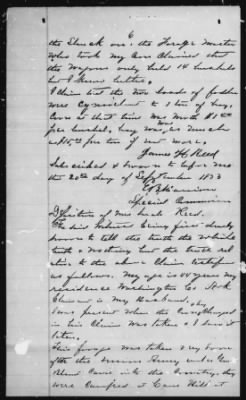 6
the Shuck on. the Forage Master
who took my Corn Claimed that
the Wagons only held 14 bushels
but I know better.
I claim that the two loads of fodder
were Equivalent to 1 ton of hay.
Corn at that time was Worth $1.00
per bushel, hay was worth as much
as $15.00 per ton if not more.
James H. Reed
Subscribed & Sworn to before me
the 20th day of September 1873
Special Commissioner
Deposition of Mrs Reed.
The said Witness being first duly
sworn to tell the truth the whole
truth & nothing but the truth
in the above Claim testifies
as follows. My age is 44 years my
residence Washington Co Ark
Claimant is my Husband.
I was present when the Corn Charged
in this Claim was taken & I saw it
taken.
This forage was taken by some
of the Army under Gen
Blunt Came into the Country, they
were Camped at Cane Hill at